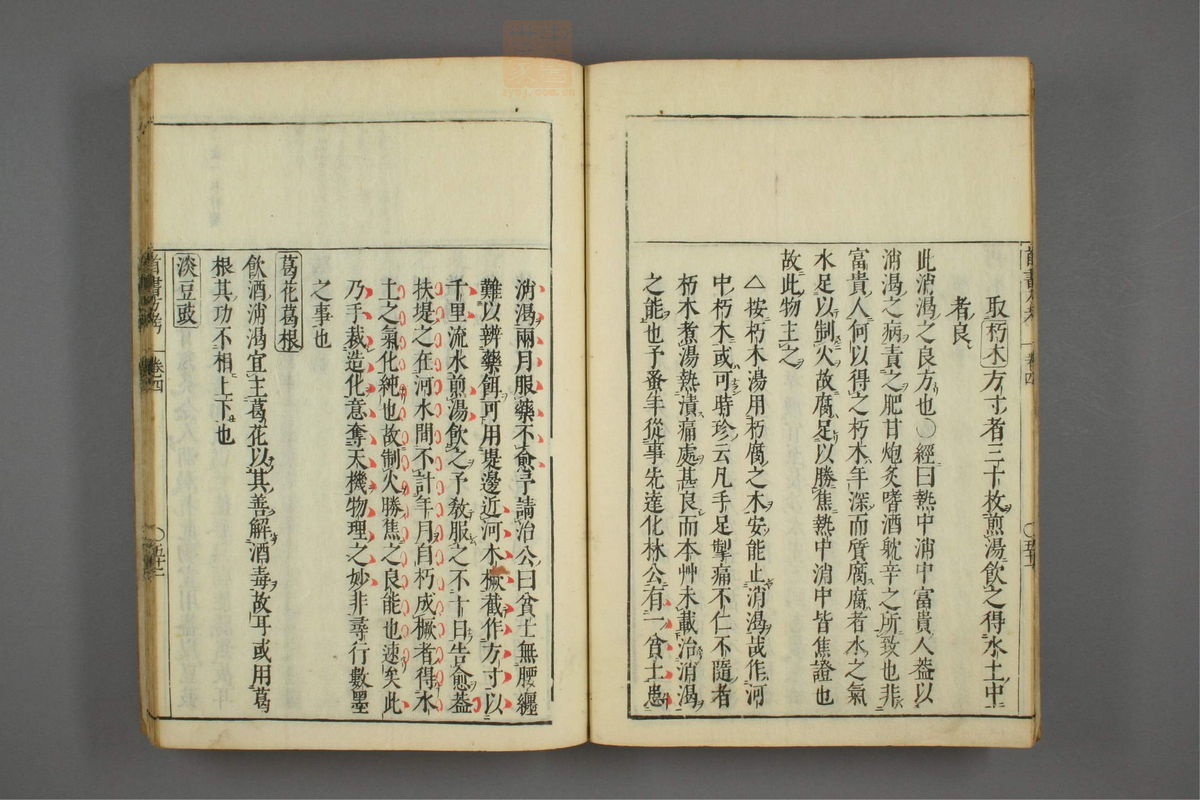 取朽木方寸者三十枚煎湯飲之得水土中
者良
此消渴之良方也○經曰熱中消中富貴人葢以
消渴之病責之肥甘炮炙嗜酒耽辛之所致也非
富貴人何以得之朽木年深而質腐腐者水之氣
水足以制火故腐足以勝焦熱中消中皆焦證也
故此物主之
△按朽木湯用朽腐之木安能止消渴哉作河
中朽木或可時珍云凡手足掣痛不仁不隨者
朽木煮湯熱漬痛處甚良而本艸未載治消渴
之能也予蚤年從事先達化林公有一貧士患
消渴兩月服藥不愈予請治公曰貧士無腰纏
難以辨藥餌可用堤邊近河木橛截作方寸以
千里流水煎湯飲之予敎服之不十日告愈葢
扶堤之在河水間不計年月自朽成橛者得水
土之氣化純也故制火勝焦之良能也速矣此
乃手裁造化意奪天機物理之妙非尋行數墨
之事也
葛花葛根
飲酒消渴宜主葛花以其善解酒毒故耳或用葛
根其功不相上下也
淡豆豉
卷四